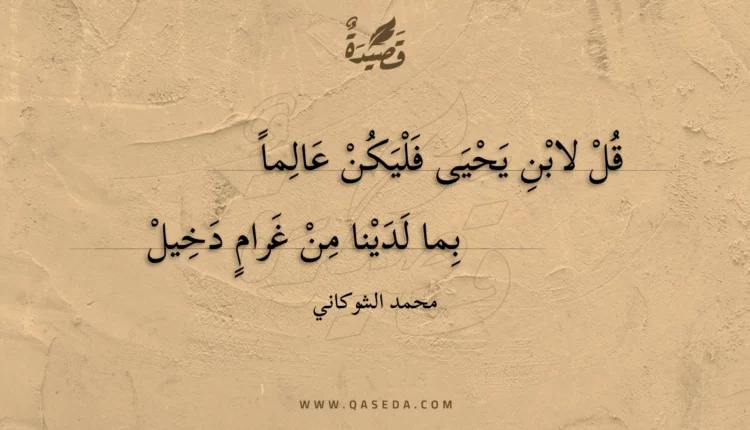 قَصِيدَةٌ
قُلْ لابْنِ يَحْيَى فَلْيَكُنْ عَالِماً
بِما لَدَيْنا مِنْ غَرامٍ دَخِيلْ
محمد الشوكاني
WWW.QASEDA.COM